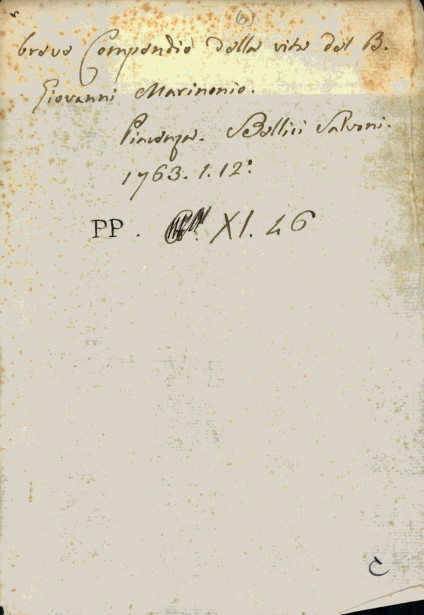 (6)
breve Compendio della vita del B.
Giovanni Marinonio.
Piacenza. Bellici Salvoni.
1763. 1. 12°
PP. XI. 46
C